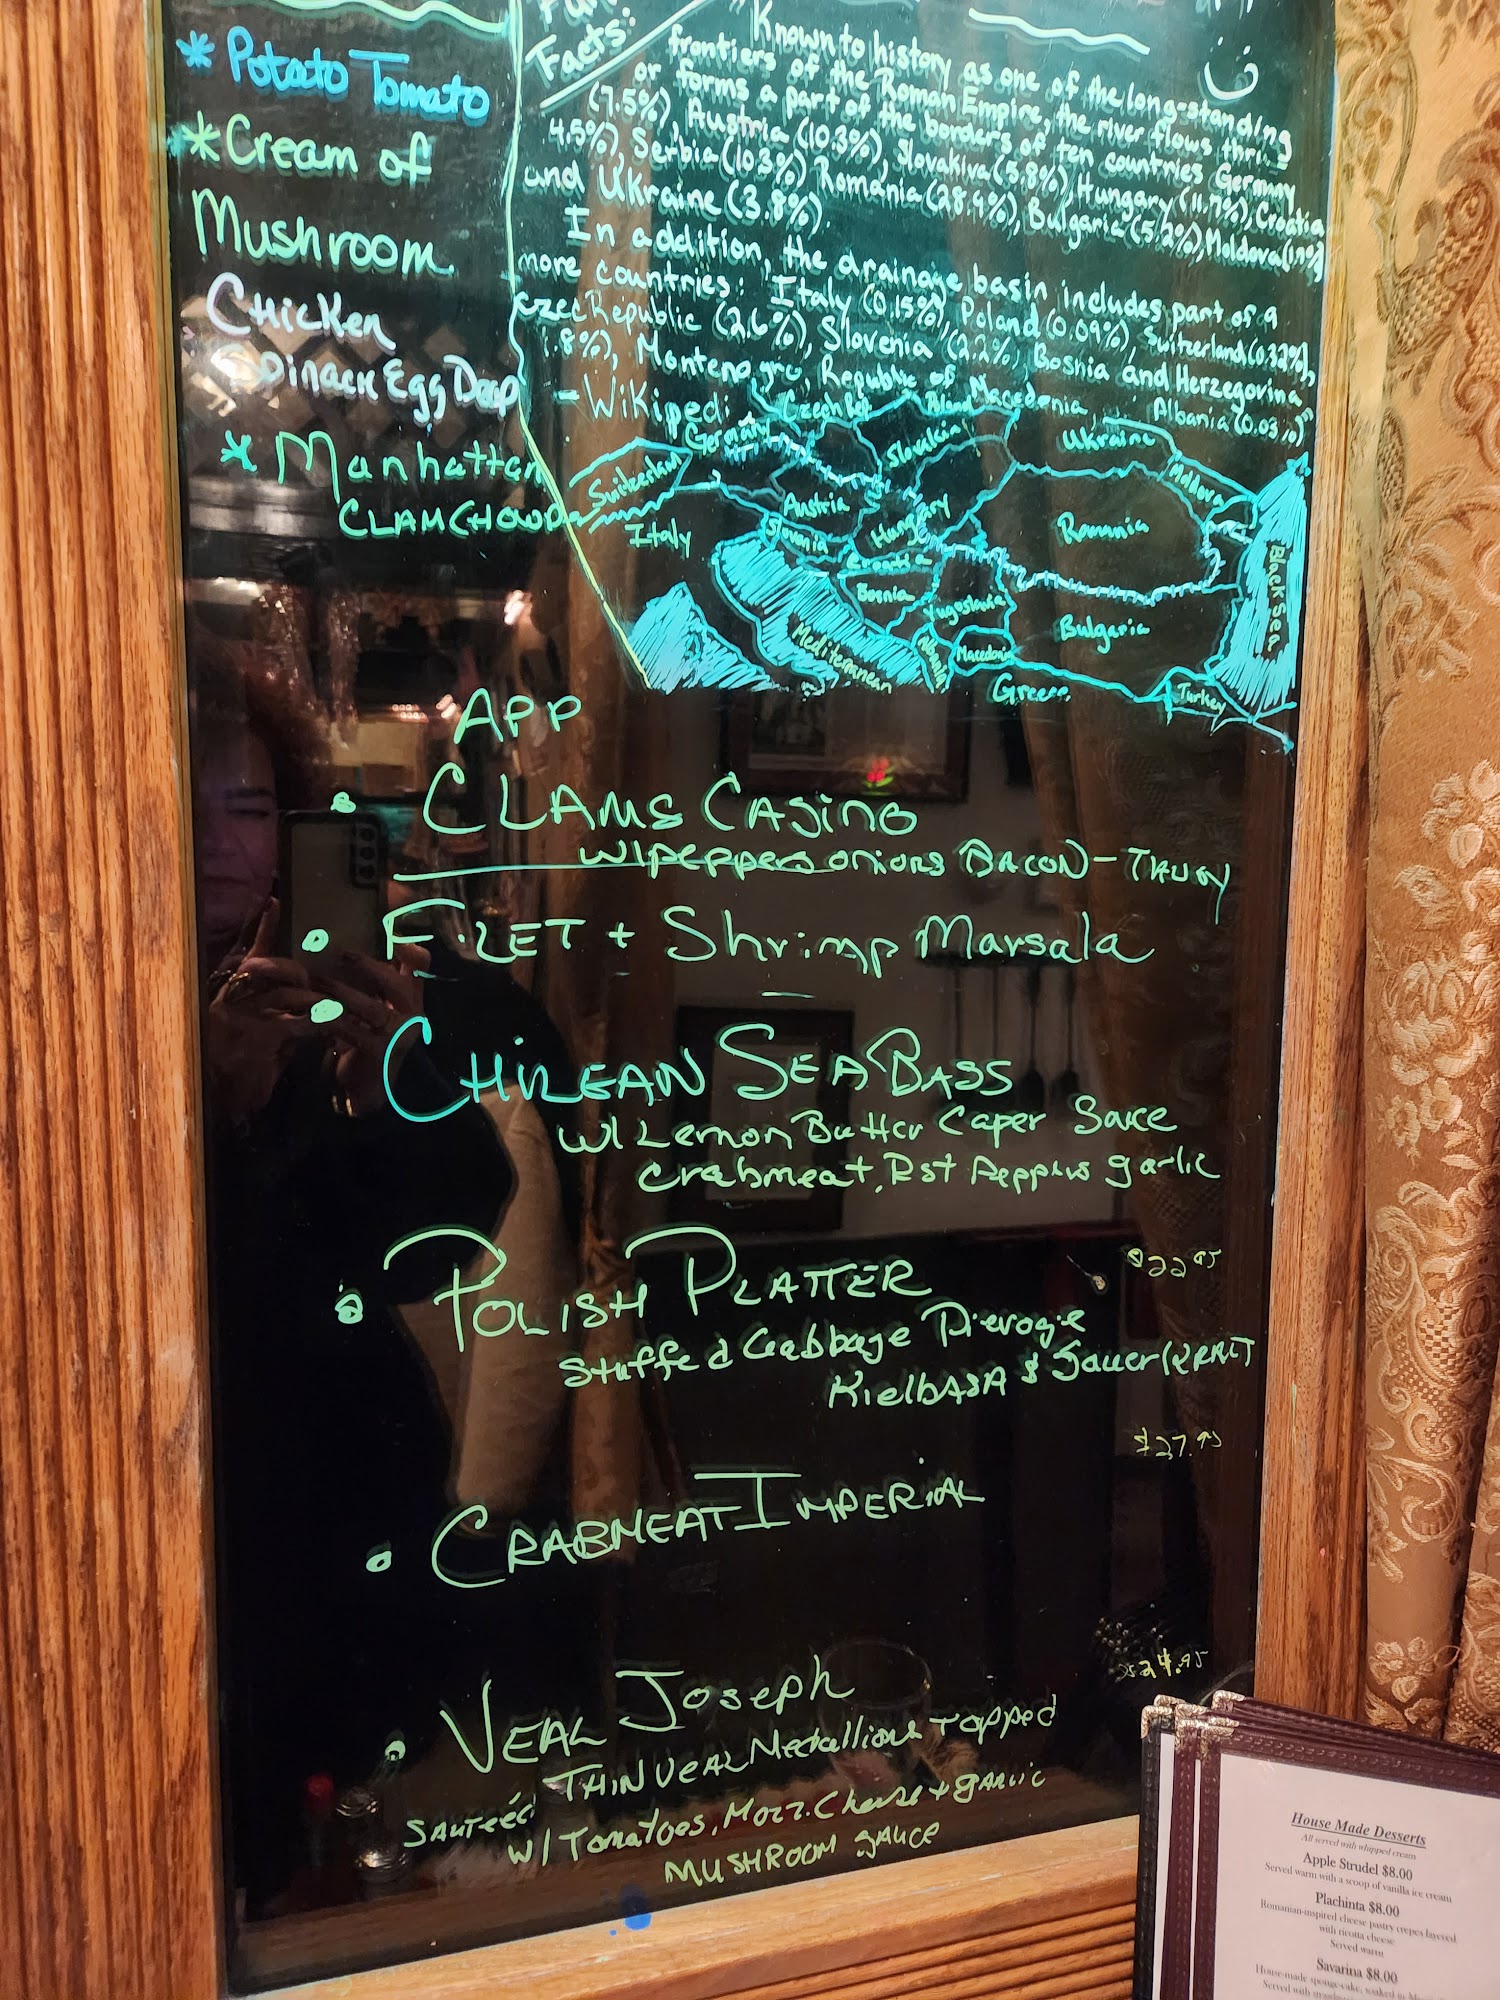 * Potato Tomato
* Cream of
Mushroom
Chicken
Spinach Egg Drop
* Manhattan
CLAM CHOWD
Fun
Facts:
"Known to history as one of the long-standing
frontiers of the Roman Empire, the river flows thru
or forms a part of the borders of ten countries Germany
(7.5%), Austria (10.3%), Slovakiva (5.8%), Hungary (11.7%), Croatia
4.5%), Serbia (10.3%), Romania (28.9%), Bulgaria (5.2%), Moldova (1.7%)
and Ukraine (3.8%).
In addition, the drainage basin includes part of a
more countries: Italy (0.15%), Poland (0.09%), Switzerland (0.32%),
Czec Republic (2.6%), Slovenia (2.2%, Bosnia and Herzegovina
.8%), Montenegro, Republic of Macedonia, Albania (0.03%)"
- Wikipedi
Czech Rep
Poland
Germany
Slovakia
Ukraine
Switzerland
Austria
Hungary
Moldova
Romania
Italy
Slovania
Croatia
Bosnia
Yugoslavia
Bulgaria
Black Sea
Mediterranean
Albania
Macedonia
Greece
Turkey
APP
• CLAMS CASINO
W/ peppers onions BACON -
• FILET + Shrimp Marsala
• CHILEAN SEA BASS
W/ Lemon Butter Caper Sauce
Crabmeat, Rst Peppers garlic
$22.95
• POLISH PLATTER
Stuffed Cabbage Pierogie
KielbASA & SauerKRAUT
$27.95
• CRABMEAT IMPERIAL
$24.95
• VEAL Joseph
SAUTÉED THIN VEAL Medallions Topped
W/ Tomatoes, Mozz. Cheese + gARLIC
MUSHROOM SAUCE
House Made Desserts
All served with whipped cream
Apple Strudel $8.00
Served warm with a scoop of vanilla ice cream
Plachinta $8.00
Romanian-inspired cheese pastry crepes layered
with ricotta cheese
Served warm
Savarina $8.00
House-made sponge-cake, soaked in
Served with